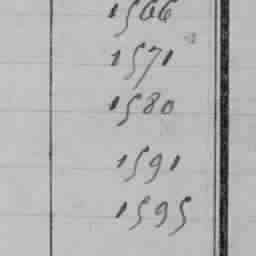 1566
1571
1580
1591
1595